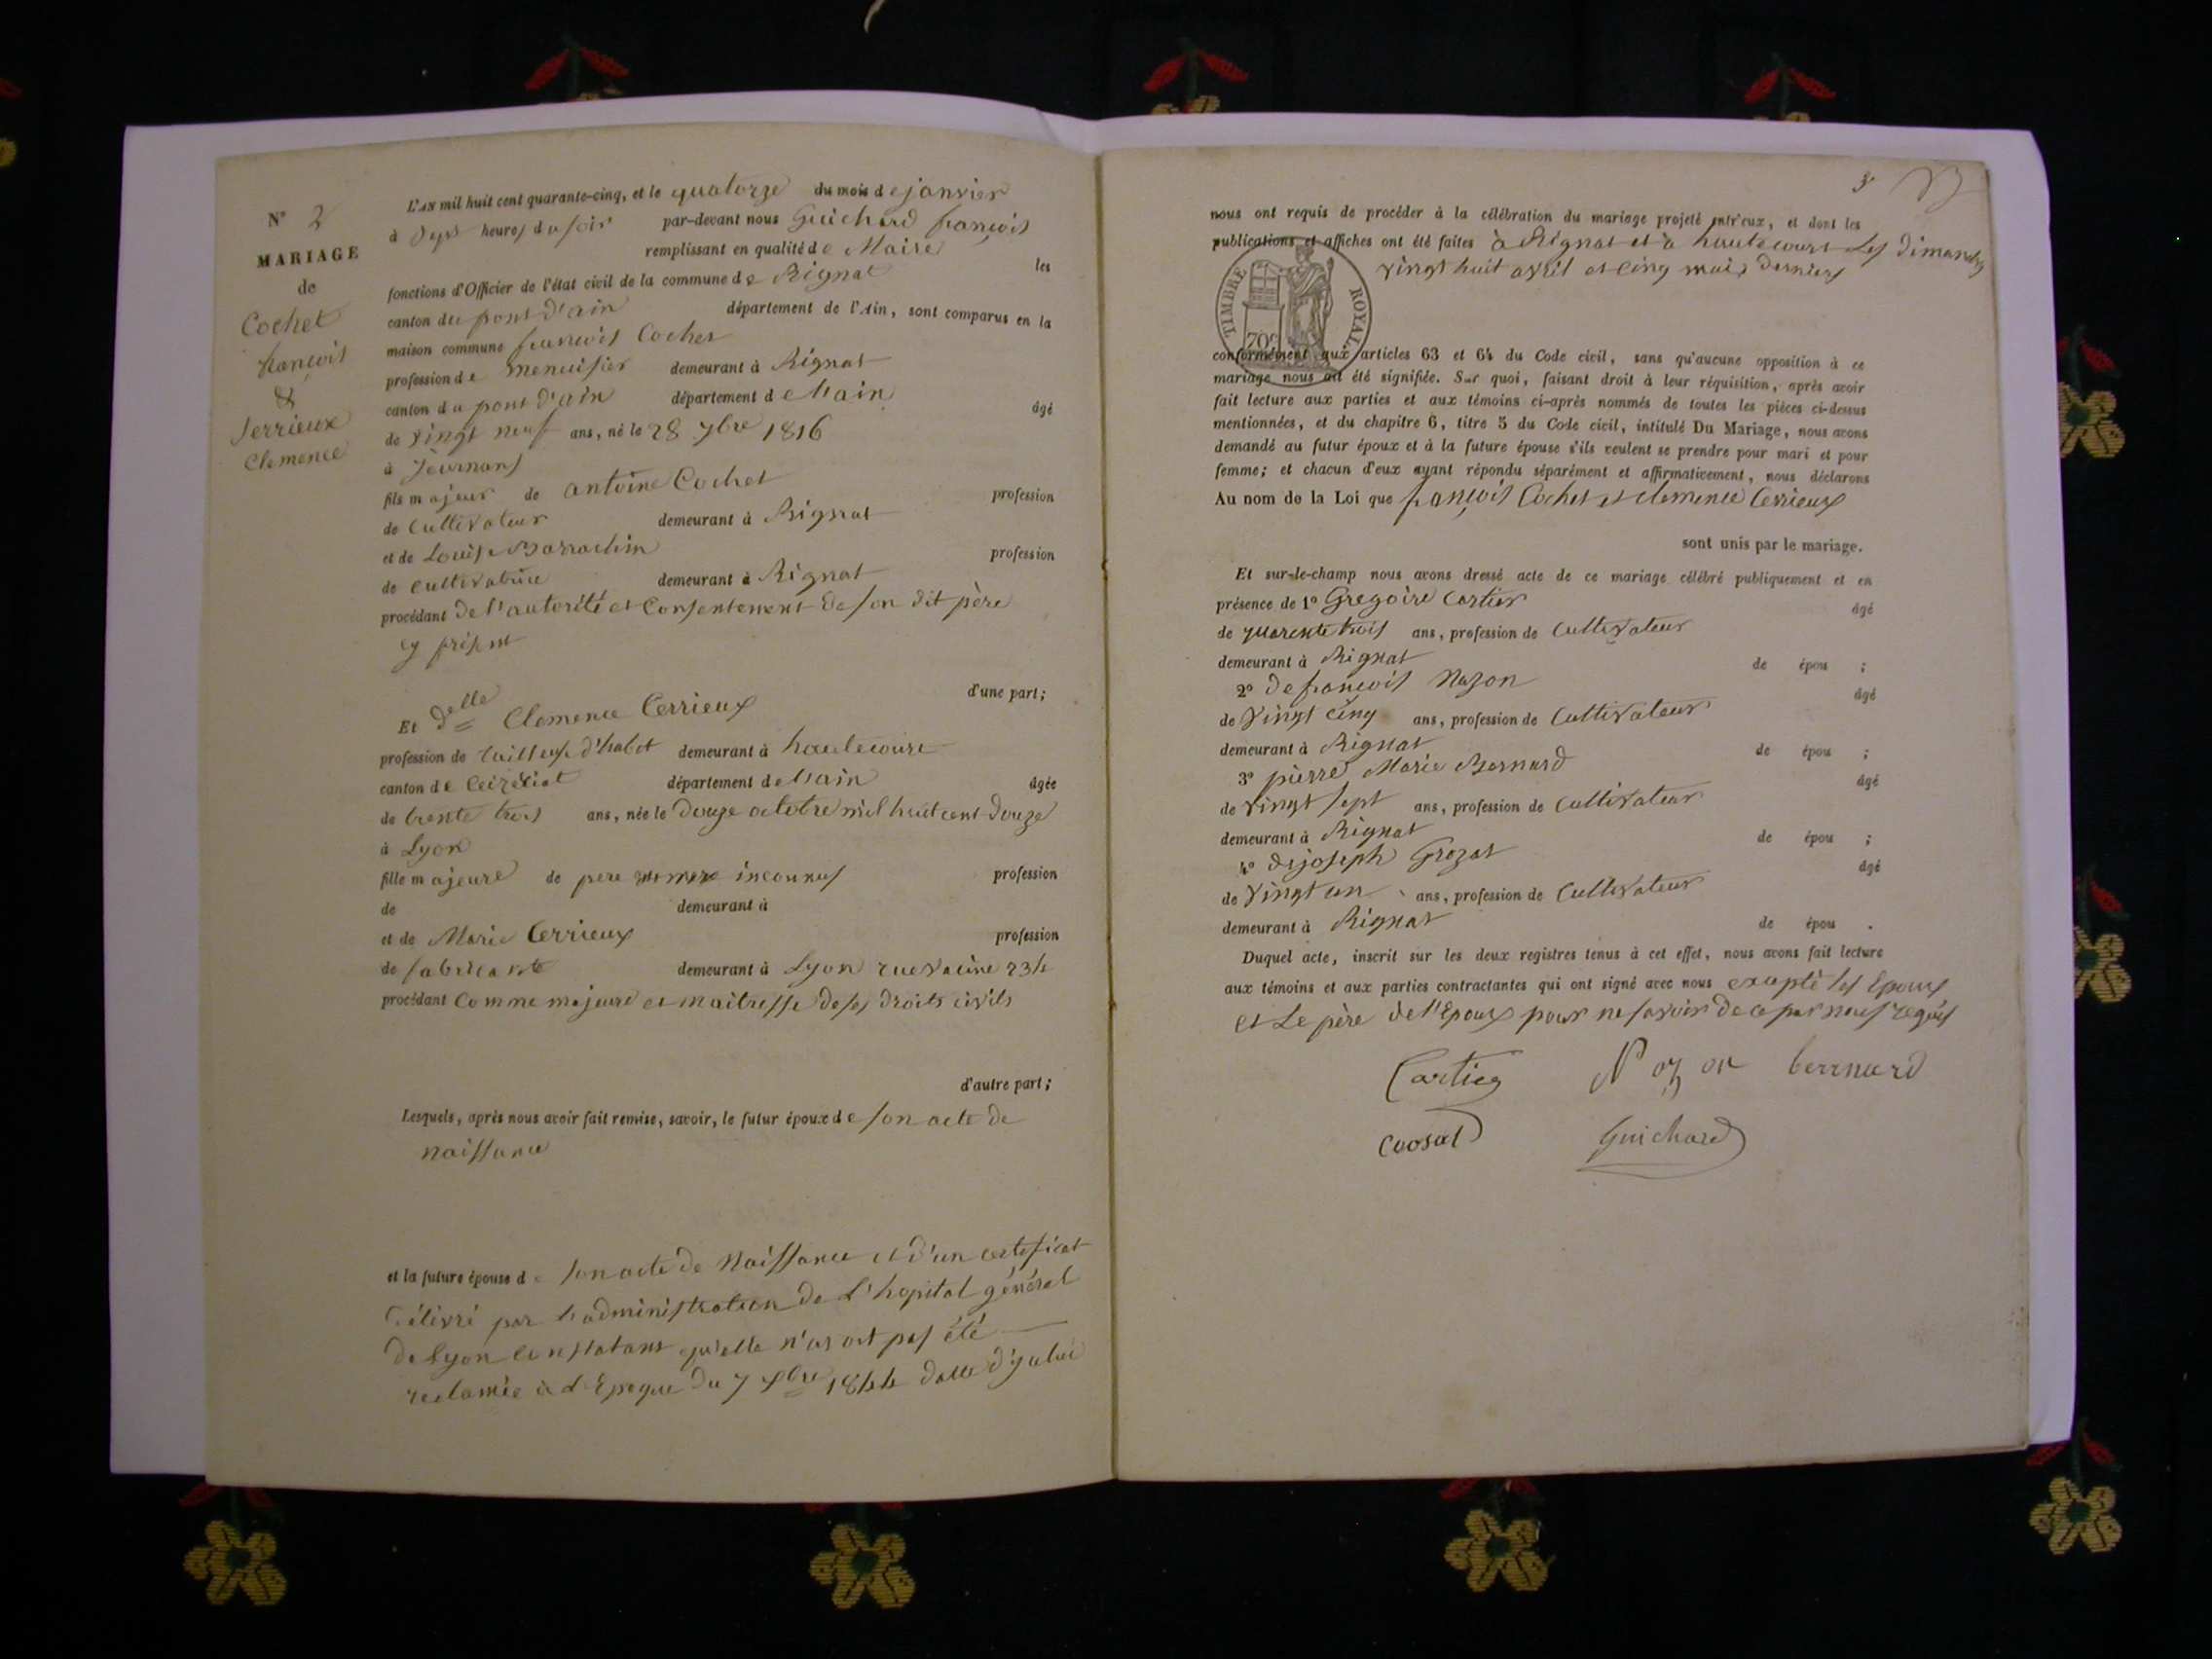 N° 2
MARIAGE
de
Cochet
françois
&
Serrieux
Clemence
L'AN mil huit cent quarante-cinq, et le quatorze du mois de janvier
à Sept heures du soir par-devant nous Guichard françois
remplissant en qualité de Maire les
fonctions d'Officier de l'état civil de la commune de Rignat
canton du pont d'ain département de l'Ain, sont comparus en la
maison commune françois Cochet
profession de menuisier demeurant à Rignat
canton du pont d'ain département de l'ain âgé
de vingt neuf ans, né le 28 7bre 1816
à Journans
fils majeur de antoine Cochet profession
de Cultivateur demeurant à Rignat
et de Louise Barrachin profession
de cultivatrice demeurant à Rignat
procédant de l'autorité et Consentement de son dit père
cy présent
d'une part;
Et Delle Clemence Cerrieux
profession de tailleuse d'habit demeurant à hautecour
canton de Ceizériat département de l'ain âgée
de trente trois ans, née le douze octobre mil huit cent douze
à Lyon
fille majeure de pere inconnus profession
de demeurant à
et de Marie Cerrieux profession
de fabricante demeurant à Lyon rue 234
procédant Comme majeure et maitresse de ses droits civils
d'autre part;
Lesquels, après nous avoir fait remise, savoir, le futur époux de son acte de
naissance
et la future épouse de son acte de Naissance et d'un certificat
délivré par l'administration de l'hopital général
de Lyon constatant qu'elle n'avoit pas été
reclamée à l'Epoque du 7 1844
3
nous ont requis de procéder à la célébration du mariage projeté entr'eux, et dont les
publications et affiches ont été faites à Rignat et à hautecourt Les dimanches
vingt huit avril et cinq mai derniers
TIMBRE ROYAL
70c
conformément aux articles 63 et 64 du Code civil, sans qu'aucune opposition à ce
mariage nous ait été signifiée. Sur quoi, faisant droit à leur réquisition, après avoir
fait lecture aux parties et aux témoins ci-après nommés de toutes les pièces ci-dessus
mentionnées, et du chapitre 6, titre 5 du Code civil, intitulé Du Mariage, nous avons
demandé au futur époux et à la future épouse s'ils veulent se prendre pour mari et pour
femme; et chacun d'eux ayant répondu séparément et affirmativement, nous déclarons
Au nom de la Loi que françois Cochet et clemence Cerrieux
sont unis par le mariage.
Et sur-le-champ nous avons dressé acte de ce mariage célébré publiquement et en
présence de 1° Gregoire Cartier âgé
de quarente trois ans, profession de Cultivateur
demeurant à Rignat de épou ;
2° de françois Nazon âgé
de vingt cinq ans, profession de Cultivateur
demeurant à Rignat de épou ;
3° pierre Marie Bernard âgé
de vingt sept ans, profession de Cultivateur
demeurant à Rignat de épou ;
4° de joseph Grozat âgé
de vingt un ans, profession de Cultivateur
demeurant à Rignat de épou .
Duquel acte, inscrit sur les deux registres tenus à cet effet, nous avons fait lecture
aux témoins et aux parties contractantes qui ont signé avec nous excepté les Epoux
et Le père de l'Epoux pour ne savoir de ce par nous requis
Cartier Nozon bernard
Guichard